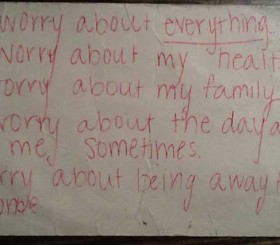 worry about everything.
worry about my healt
orry about my family
worry about the day a
me, sometimes.
rry about being away f